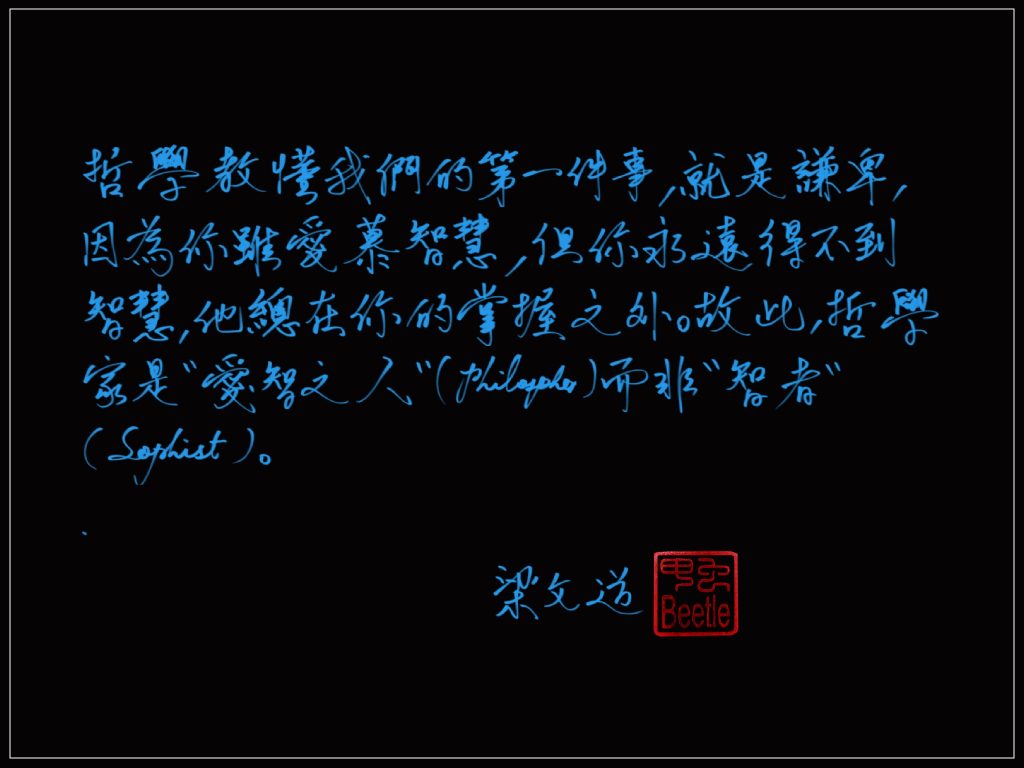 哲學教懂我們的第一件事,就是謙卑,
因為你雖愛慕智慧,但你永遠得不到
智慧,他總在你的掌握之外。故此,哲學
家是"愛智之人"(Philosopher)而非"智者"
(Sophist)。
梁文道
Beetle